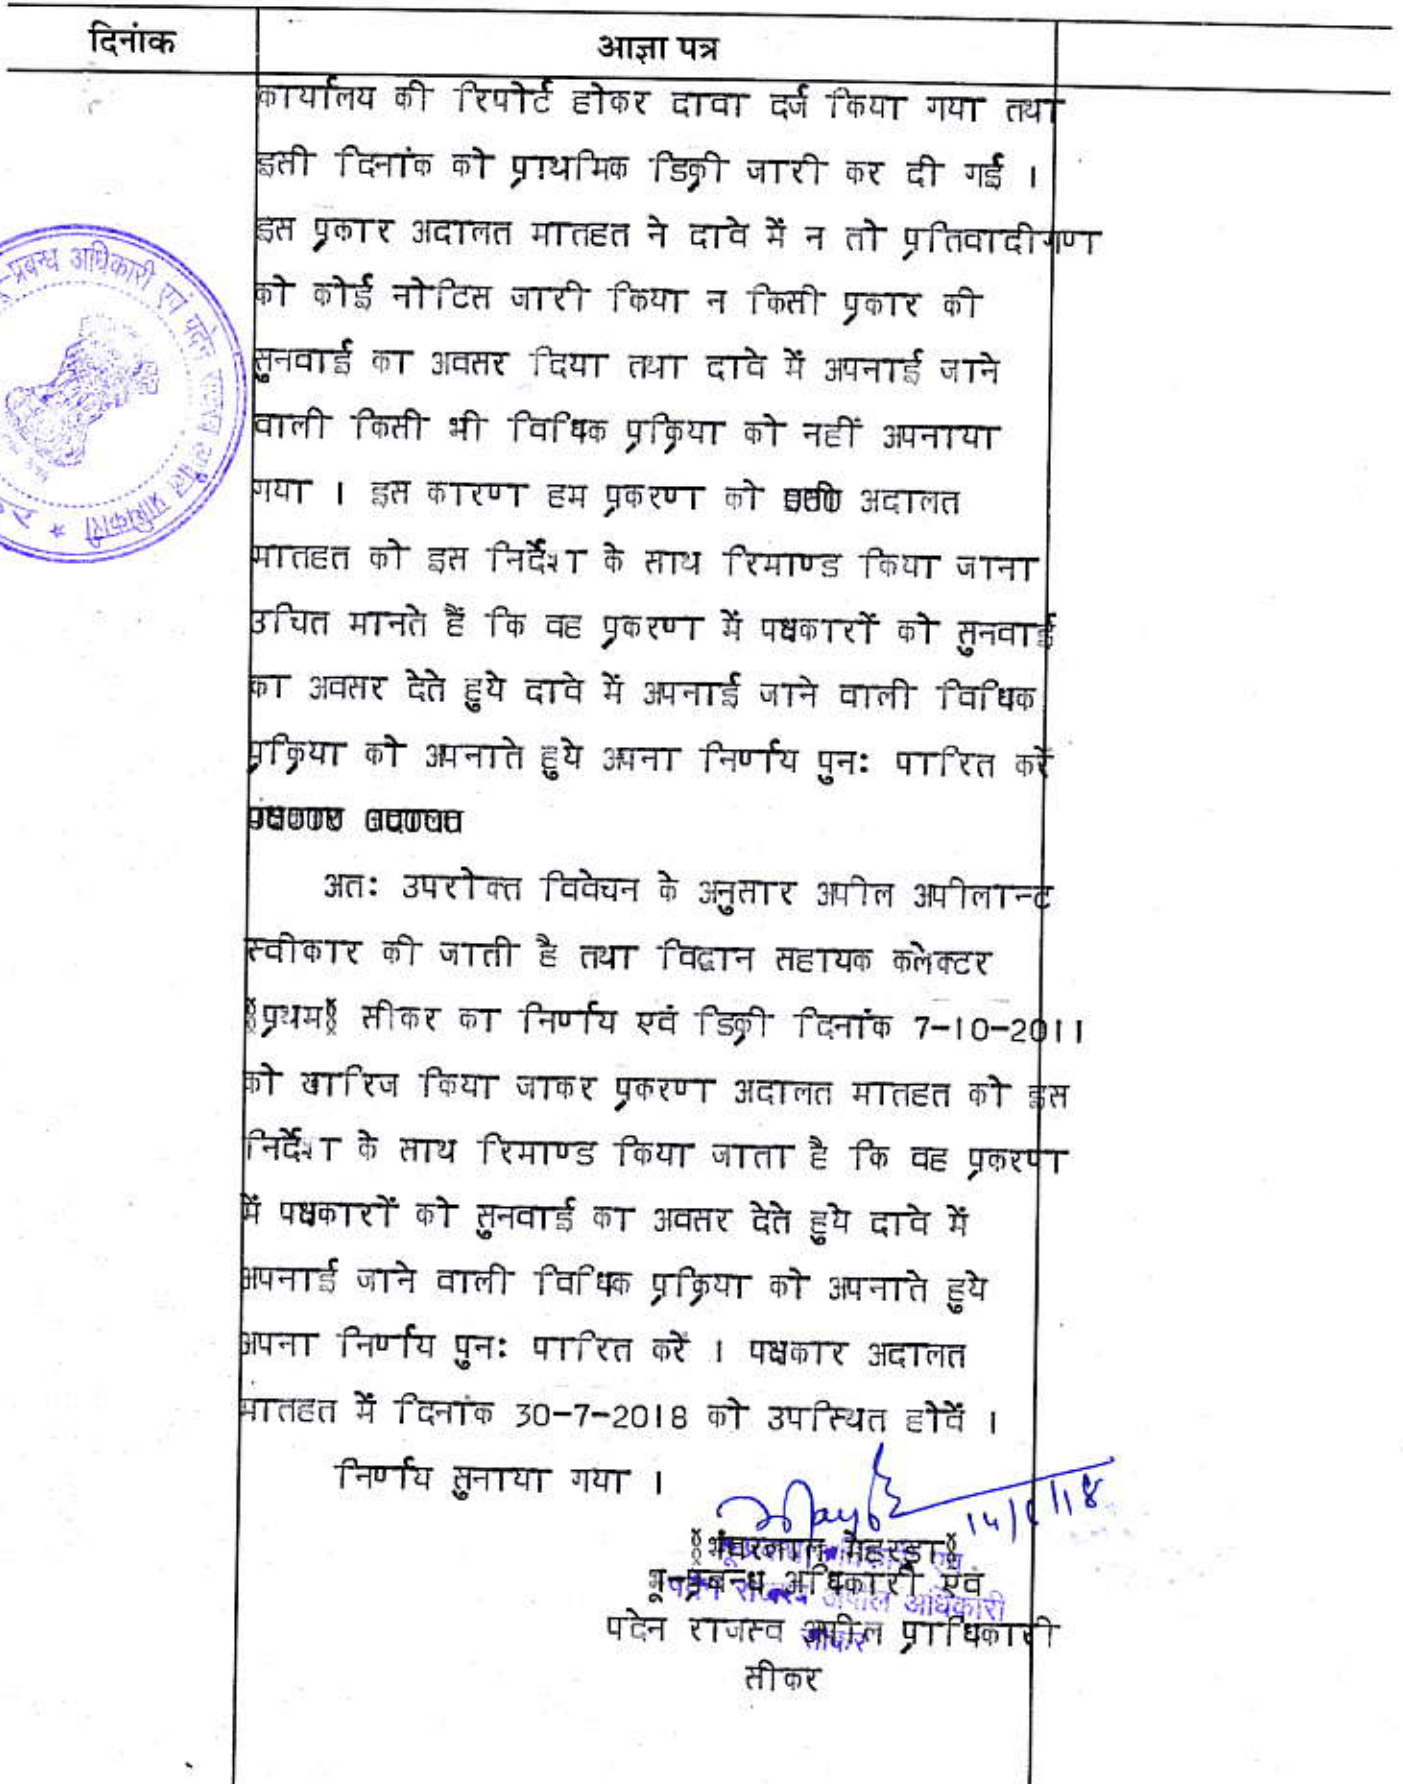 दिनांक
आज्ञा पत्र
कार्यालय की रिपोर्ट होकर दावा दर्ज किया गया तथा
इसी दिनांक को प्राथमिक डिक्री जारी कर दी गई ।
इस प्रकार अदालत मातहत ने दावे में न तो प्रतिवादीगण
को कोई नोटिस जारी किया न किसी प्रकार की
सुनवाई का अवसर दिया तथा दावे में अपनाई जाने
वाली किसी भी विधिक प्रक्रिया को नहीं अपनाया
गया । इस कारण हम प्रकरण को अदालत
मातहत को इस निर्देश के साथ रिमाण्ड किया जाना
उचित मानते हैं कि वह प्रकरण में पक्षकारों को सुनवाई
का अवसर देते हुये दावे में अपनाई जाने वाली विधिक
प्रक्रिया को अपनाते हुये अपना निर्णय पुनः पारित करें
अतः उपरोक्त विवेचन के अनुसार अपील अपीलान्ट
स्वीकार की जाती है तथा विद्वान सहायक कलेक्टर
॥प्रथम॥ सीकर का निर्णय एवं डिक्री दिनांक 7-10-2011
को खारिज किया जाकर प्रकरण अदालत मातहत को इस
निर्देश के साथ रिमाण्ड किया जाता है कि वह प्रकरण
में पक्षकारों को सुनवाई का अवसर देते हुये दावे में
अपनाई जाने वाली विधिक प्रक्रिया को अपनाते हुये
अपना निर्णय पुनः पारित करें । पक्षकार अदालत
मातहत में दिनांक 30-7-2018 को उपस्थित होवें ।
निर्णय सुनाया गया ।
॥भंवरलाल मेहरड़ा॥
भू-प्रबन्ध अधिकारी एवं
पदेन राजस्व अपील प्राधिकारी
सीकर
प्रबन्ध अधिकारी एवं पदेन राजस्व अपील प्राधिकारी